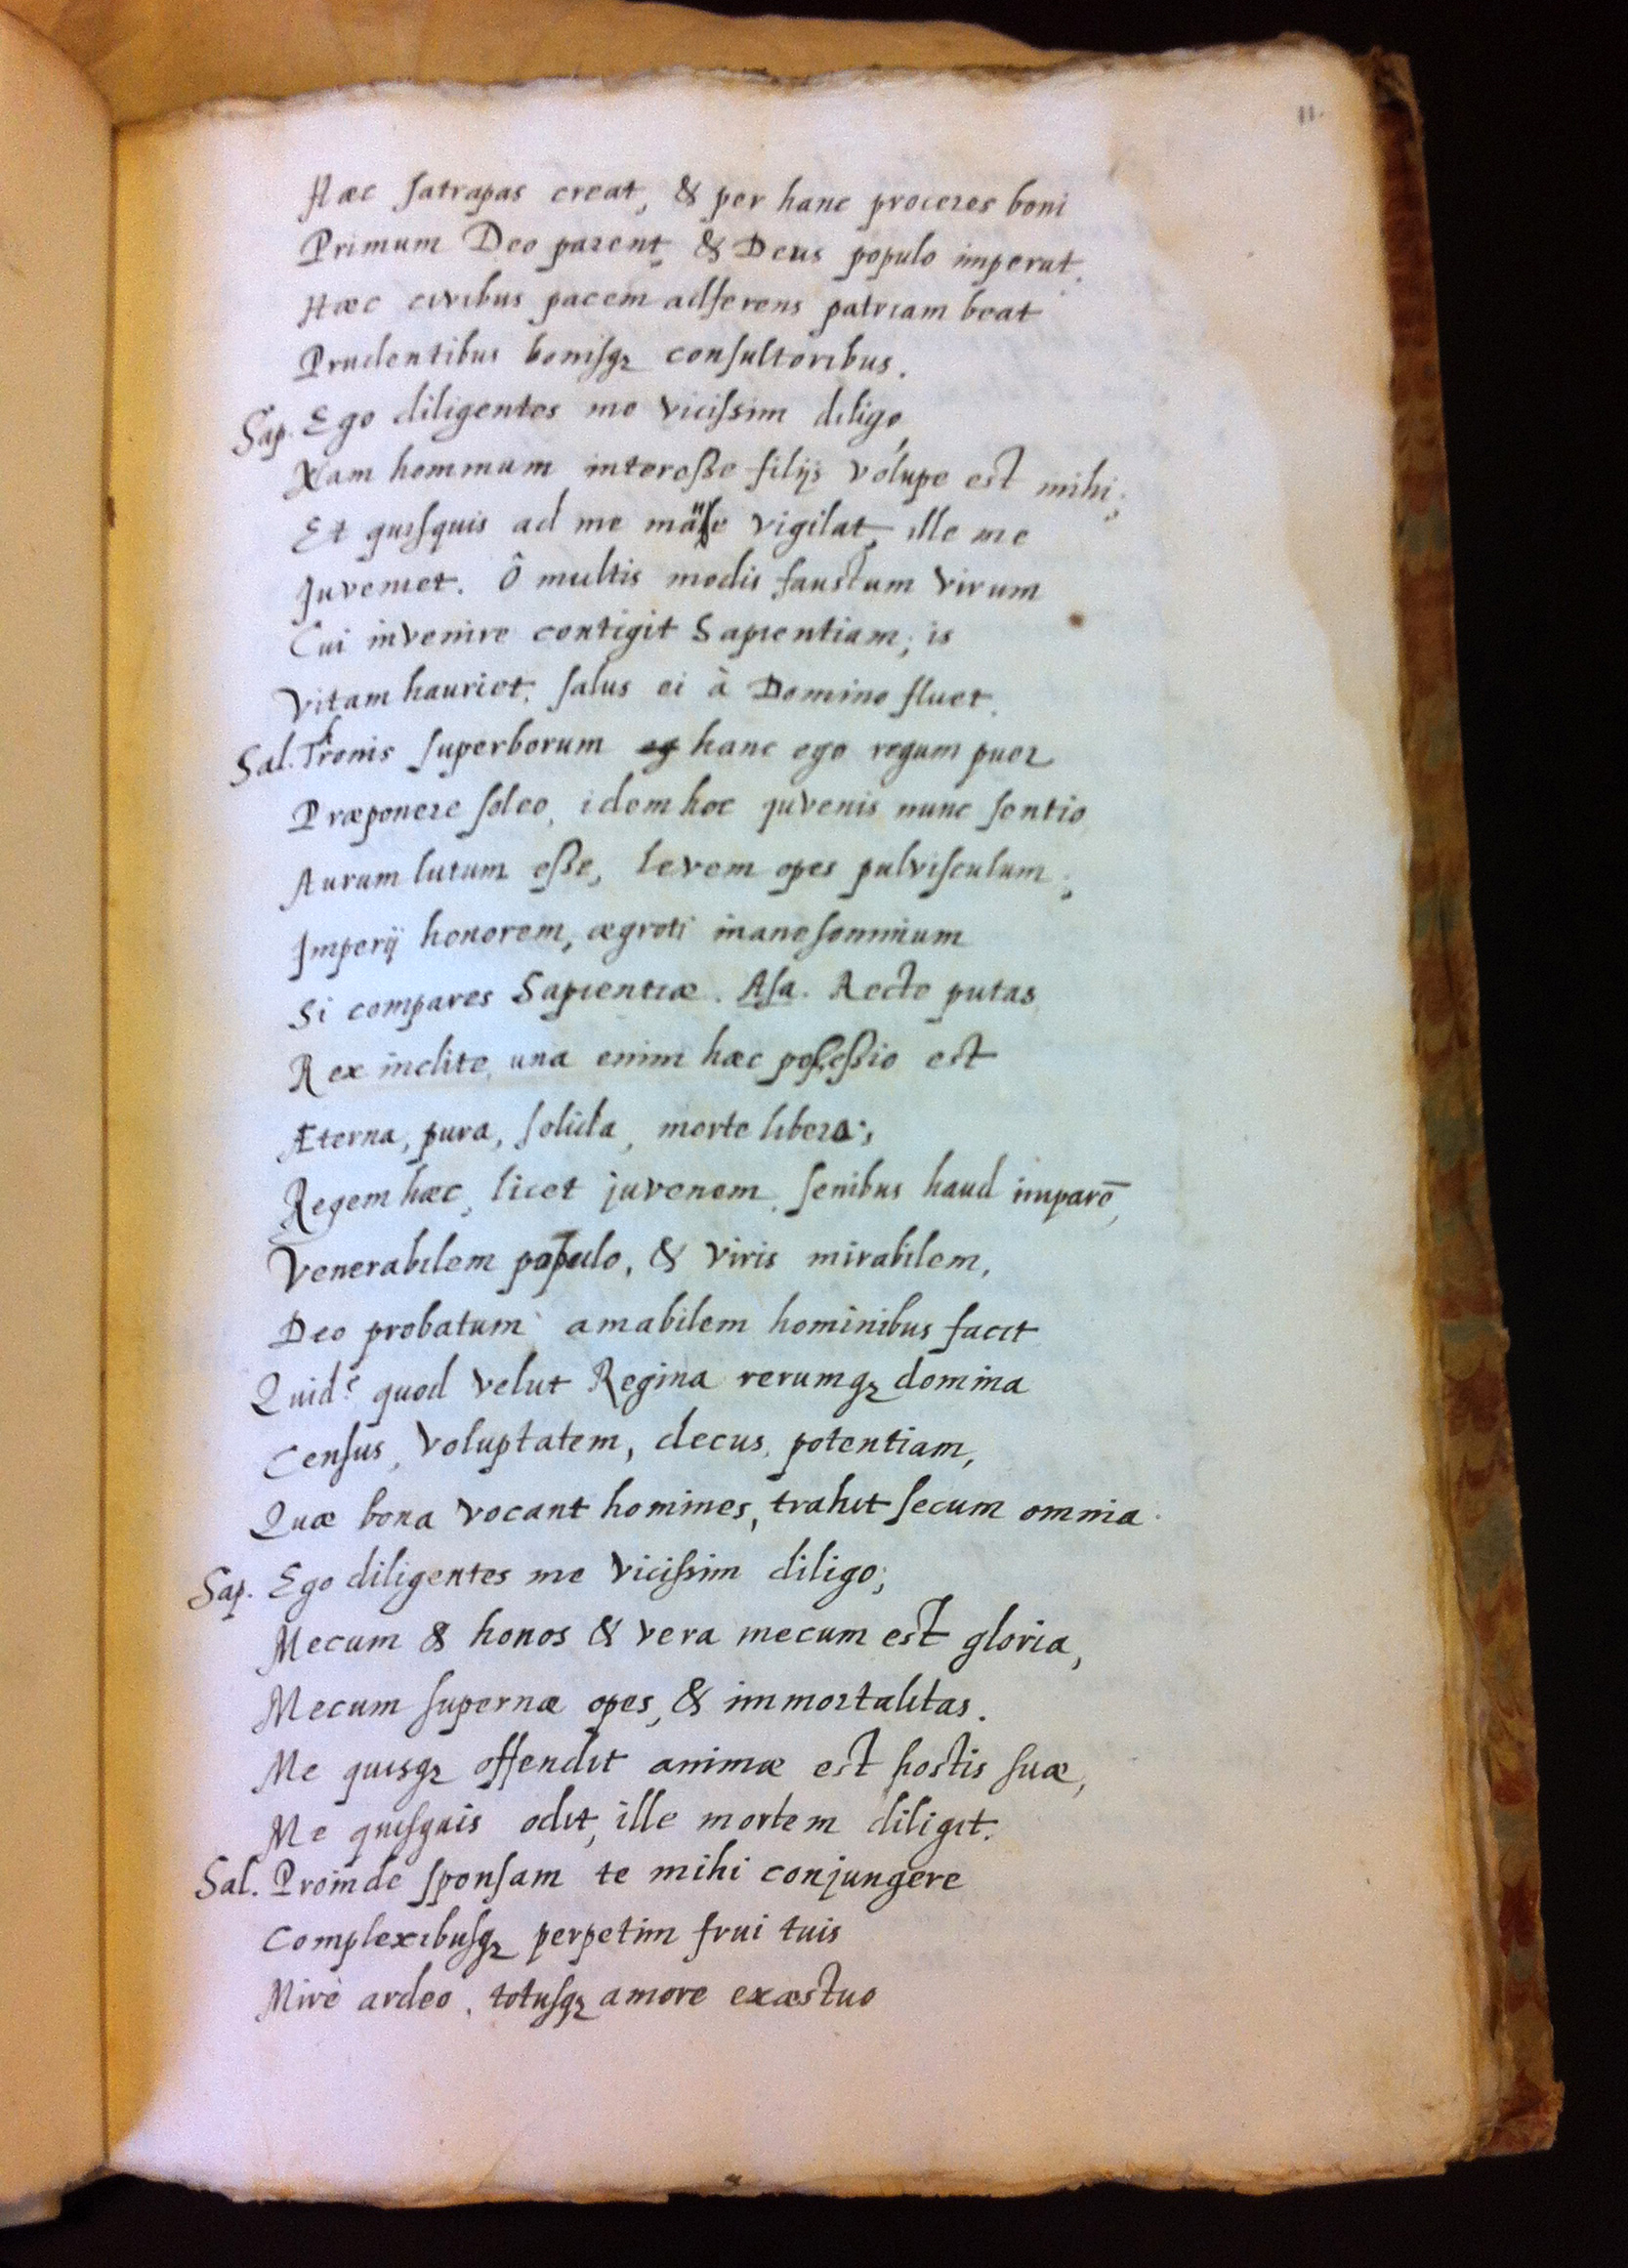 11.
Hæc satrapas creat, & per hanc proceres boni
Primum Deo parent, & Deus populo imperat.
Hæc civibus pacem adferens patriam beat
Prudentibus bonisq; consultoribus.
Sap. Ego diligentes me vicissim diligo,
Nam hominum interesse filijs volupe est mihi;
Et quisquis ad me mane vigilat, ille me
Inveniet. Ô multis modis faustum virum
Cui invenire contigit Sapientiam; is
Vitam hauriet, salus ei à Domino fluet.
Sal. Thronis superborum hanc ego regum puer
Præponere soleo, idem hoc juvenis nunc sentio
Aurum lutum esse, levem opes pulvisculum;
Imperij honorem, ægroti inane somnium
Si compares Sapientiæ. Asa. Recte putas
Rex inclite, una enim hæc possessio est
Æterna, pura, solida, morte libera;
Regem hæc, licet juvenem, senibus haud imparē,
Venerabilem populo, & viris mirabilem,
Deo probatum amabilem hominibus facit
Quid? quod velut Regina rerumq; domina
Census, voluptatem, decus, potentiam,
Quæ bona vocant homines, trahit secum omnia.
Sap. Ego diligentes me vicissim diligo;
Mecum & honos & vera mecum est gloria,
Mecum supernæ opes, & immortalitas.
Me quisq; offendit animæ est hostis suæ,
Me quisquis odit, ille mortem diligit.
Sal. Proinde sponsam te mihi conjungere
Complexibusq; perpetim frui tuis
Mirè ardeo, totusq; amore exæstuo